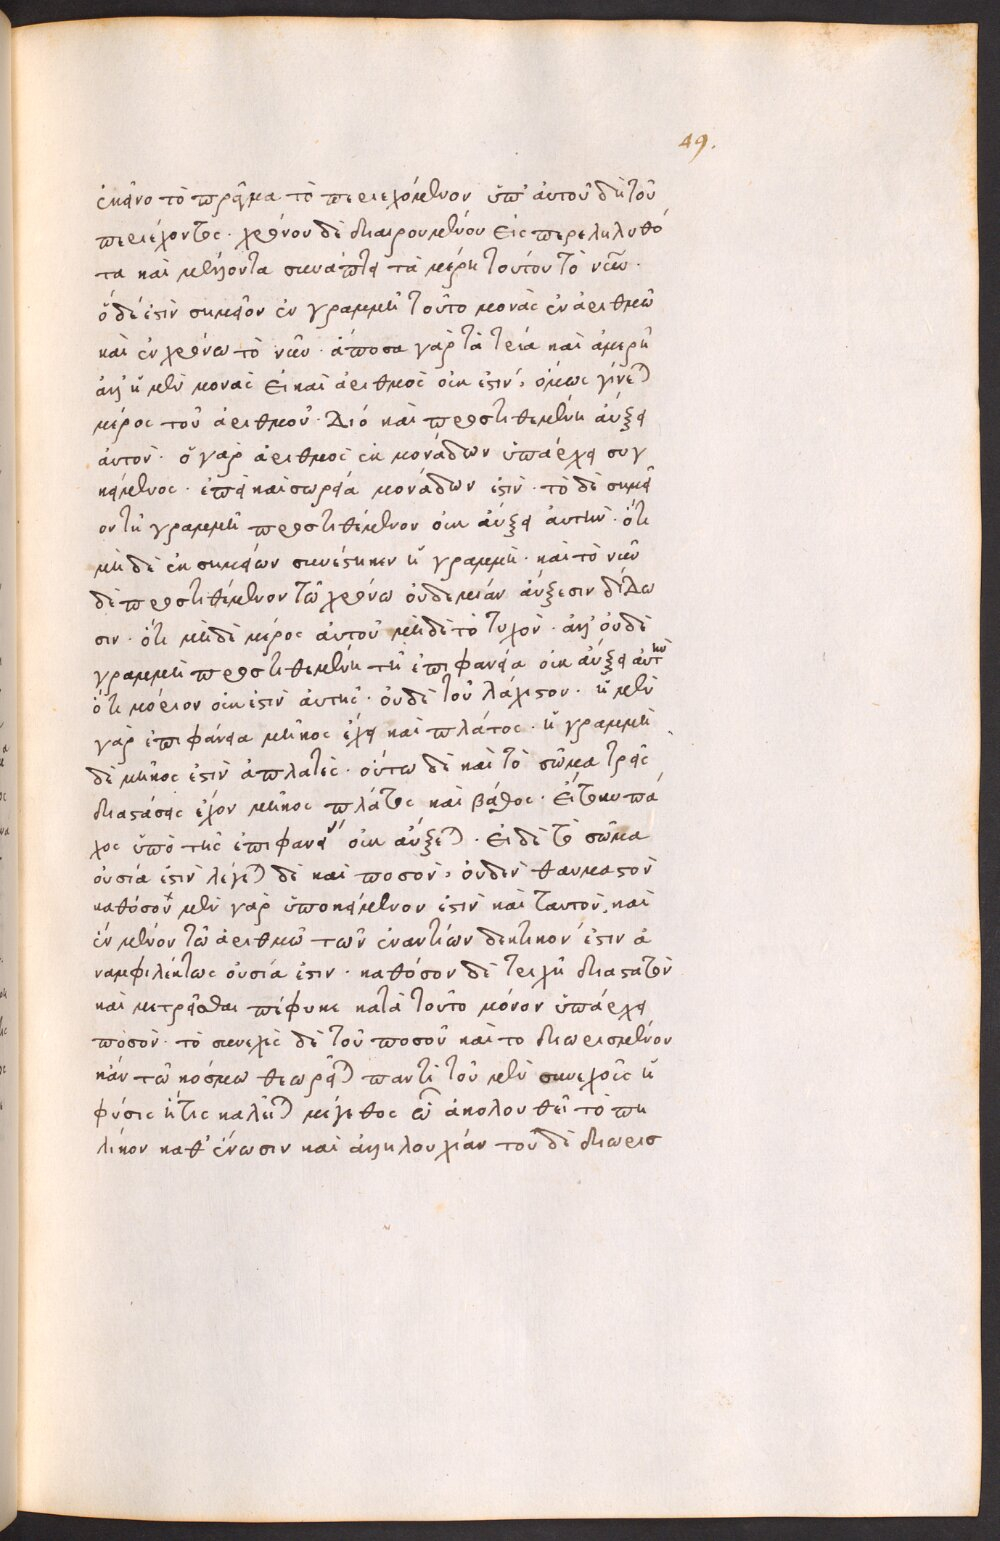 49.
ἐκεῖνο τὸ πρᾶγμα τὸ περιεχόμενον ὑπ' αὐτοῦ δὴ τοῦ
περιέχοντος· χρόνου δὲ διαιρουμένου εἰς παρεληλυθό
τα καὶ μέλλοντα συνάπτει τὰ μέρη τούτου τὸ νῦν·
ὃ δέ ἐστιν σημεῖον ἐν γραμμῇ τοῦτο μονὰς ἐν ἀριθμῶ
καὶ ἐν χρόνω τὸ νῦν· ἄποσα γὰρ τὰ τρία καὶ ἀμερῆ
ἀλλ' ἡ μὲν μονὰς εἰ καὶ ἀριθμὸς οὐκ ἐστιν, ὅμως γίνεται
μέρος τοῦ ἀριθμοῦ· διό καὶ προστιθεμένη αὔξει
αὐτόν· ὁ γὰρ ἀριθμὸς ἐκ μονάδων ὑπάρχει συγ
κείμενος· ἐπεὶ καὶ σωρεία μονάδων ἐστίν· τὸ δὲ σημεῖ
ον τῇ γραμμῇ προστιθέμενον οὐκ αὔξει αὐτήν· ὅτι
μὴ δὲ ἐκ σημείων συνέστηκεν ἡ γραμμή· καὶ τὸ νῦν
δὲ προστιθέμενον τῶ χρόνω οὐδεμίαν αὔξεσιν δίδω
σιν· ὅτι μὴ δὲ μέρος αὐτοῦ μὴ δὲ τὸ τυχόν· ἀλλ' οὐδὲ
γραμμὴ προστιθεμένη τῇ ἐπιφανεία οὐκ αὔξει αὐτὴν
ὅτι μόριον οὐκ ἐστιν αὐτῆς· οὐδὲ τοὐλάχιστον· ἡ μὲν
γὰρ ἐπιφάνεια μῆκος ἔχει καὶ πλάτος· ἡ γραμμὴ
δὲ μῆκος ἐστὶν ἀπλατές· οὕτω δὲ καὶ τὸ σῶμα τρεῖς
διαστάσεις ἔχον μῆκος πλάτος καὶ βάθος· εἴτουν πά
χος ὑπὸ τῆς ἐπιφανείας οὐκ αὔξεται· εἰ δὲ τὸ σῶμα
οὐσία ἐστιν λέγεται δὲ καὶ ποσόν, οὐδὲν θαυμαστόν
καθόσον μὲν γὰρ ὑποκείμενον ἐστιν καὶ ταυτόν, καὶ
ἓν μένον τῶ ἀριθμῶ τῶν ἐναντίων δεκτικόν ἐστιν ἀ
ναμφιλέκτως οὐσία ἐστιν· καθόσον δὲ τριχῇ διαστατὸν
καὶ μετρεῖσθαι πέφυκε κατὰ τοῦτο μόνον ὑπάρχει
ποσόν· τὸ συνεχὲς δὲ τοῦ ποσοῦ καὶ το διωρισμένον
κἀν τῶ κόσμω θεωρεῖται παντὶ τοῦ μὲν συνεχοῦς ἡ
φύσις ἥτις καλεῖται μέγεθος ὧ ἀκολουθεῖ τὸ πη
λίκον καθ' ἕνωσιν καὶ ἀλληλουχίαν τοῦ δὲ διωρισ